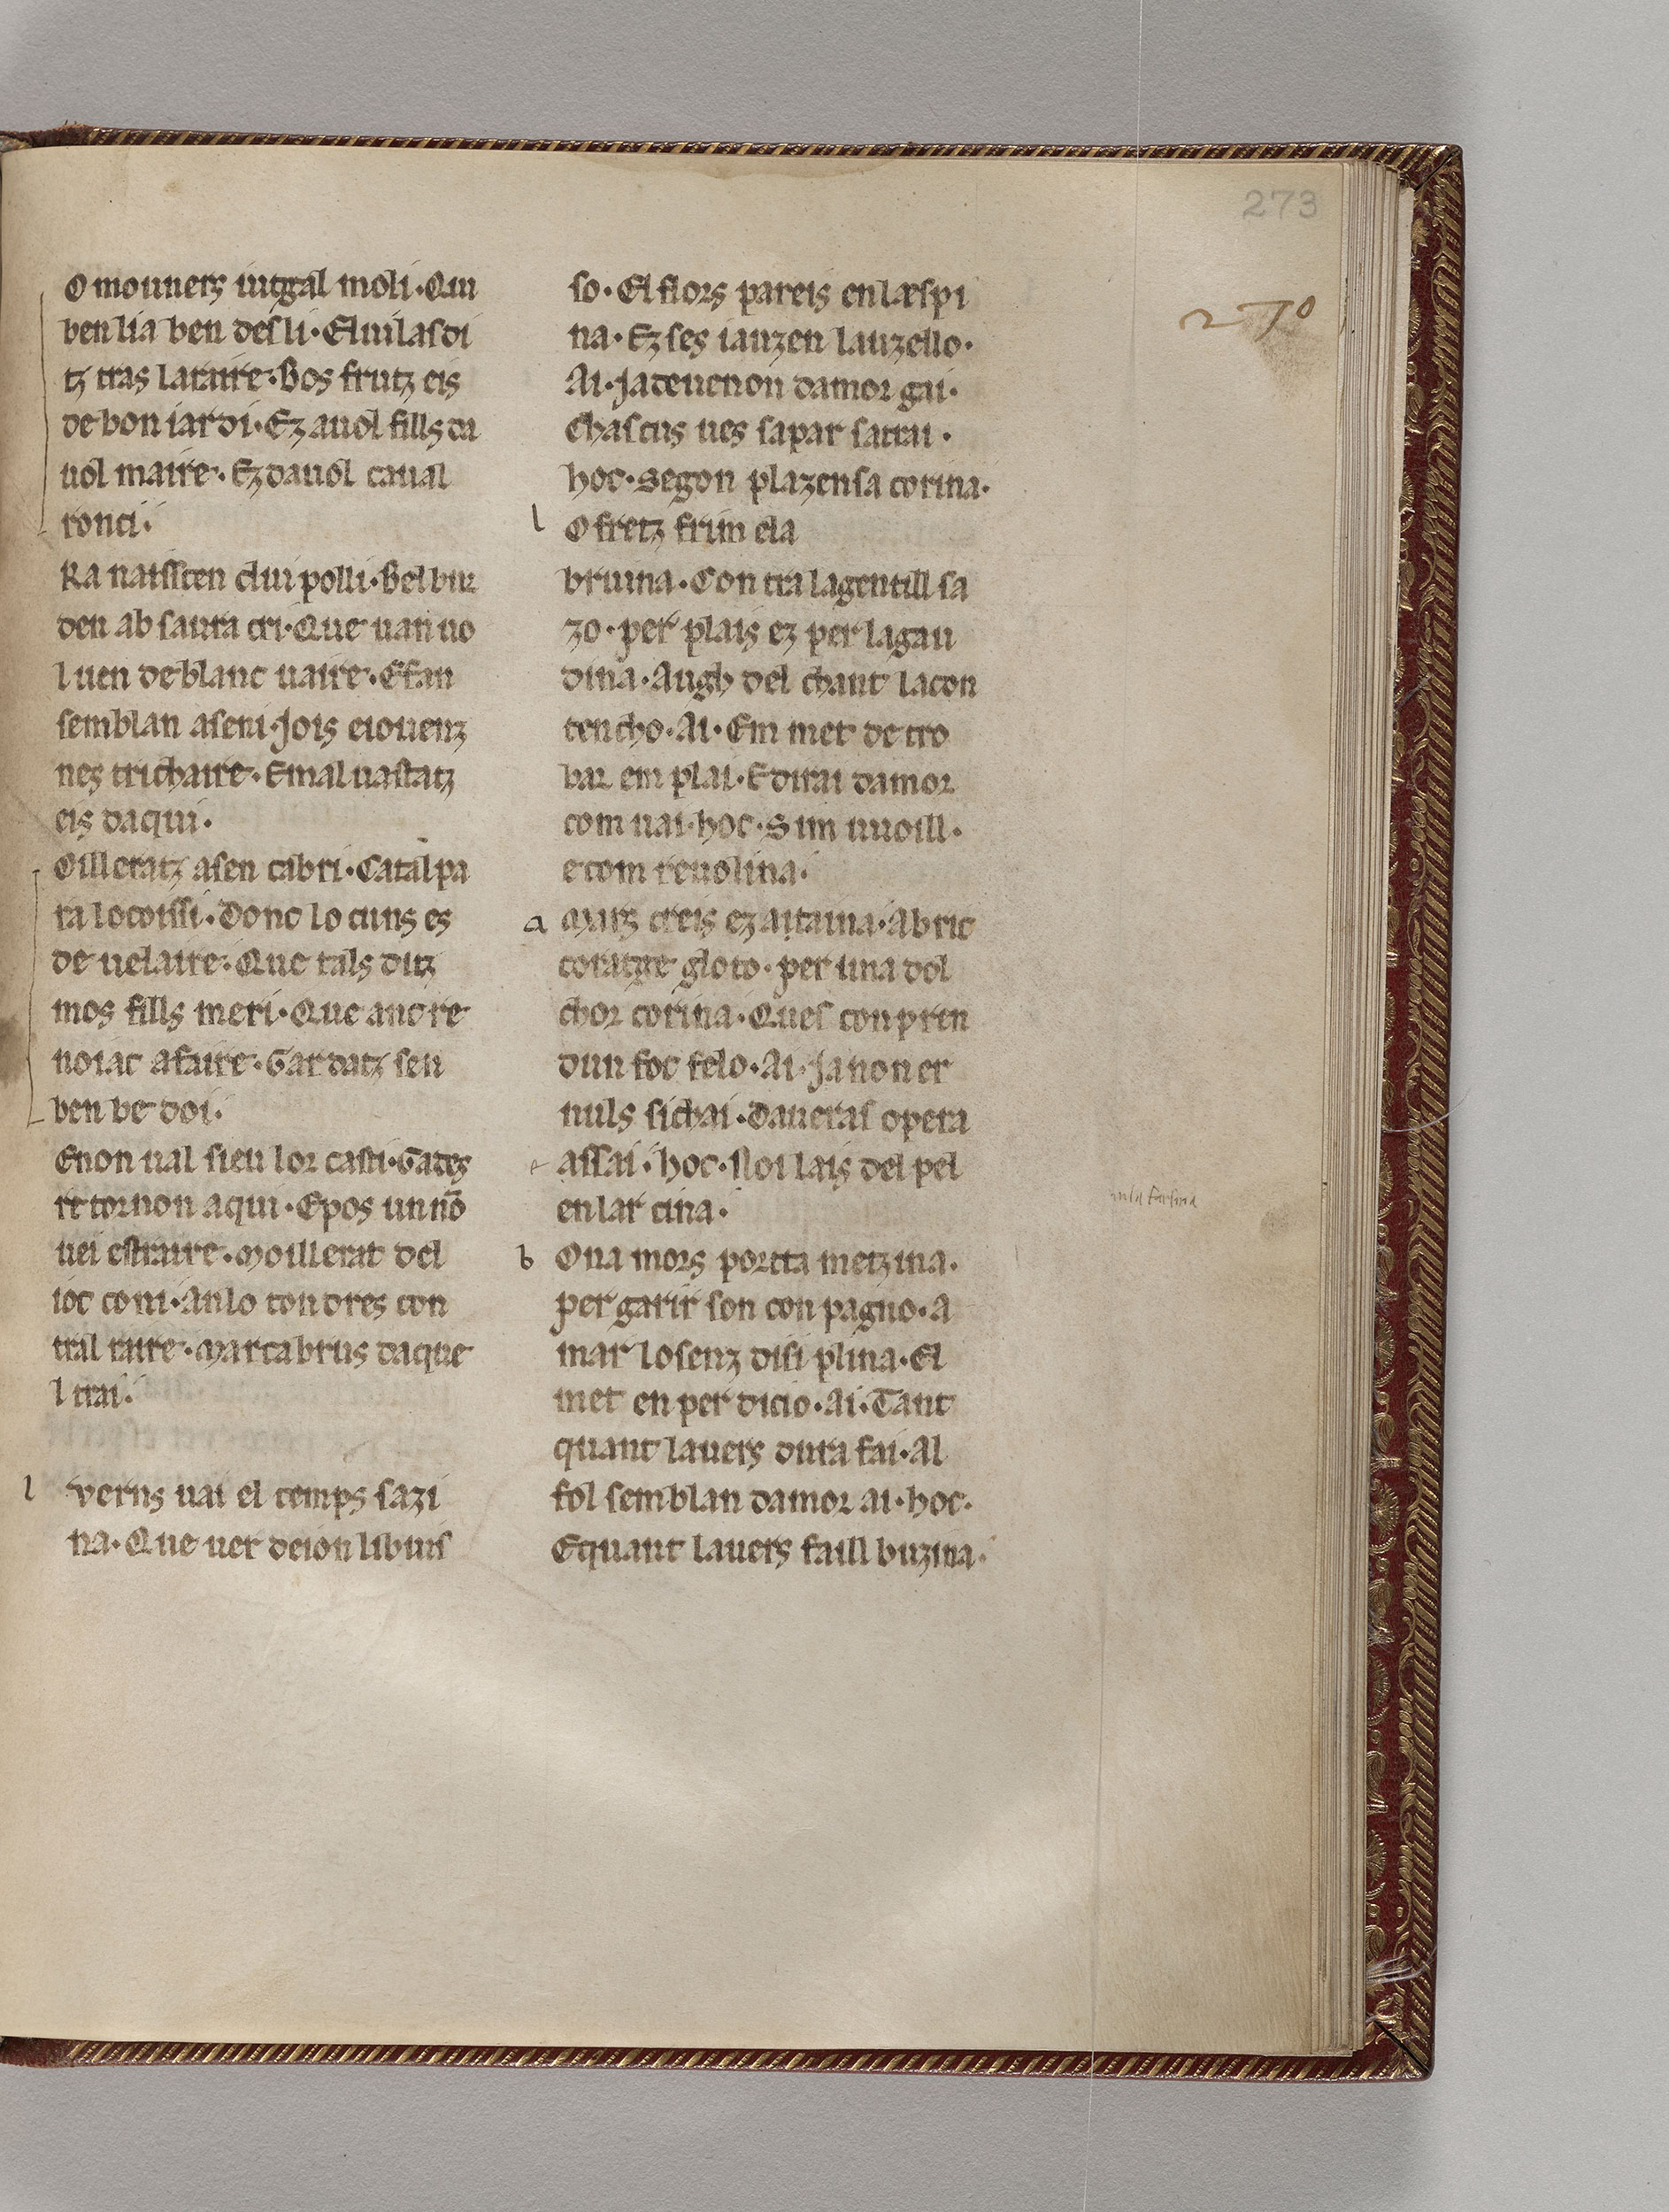 273
270
O mouners iutgal moli · Qui
ben lia ben desli · El uilas di
tz tras lataire · Bos frutz eis
de bon iardi · Ez auol fills da
uol maire · Ez dauol caual
ronci ·
Ra naisscen diu polli · Bel bur
den ab saura cri · Que uan uo
luen de blanc uaire · E fan
semblan aseni · Jois eiouenz
nes trichaire · E maluastatz
eis daqui ·
Oilleratz asen cabri · Catalpa
ra locoissi · Donc lo cuns es
de uelaire · Que tals ditz
mos fills meri · Que anc re
noiac afaire · Gardatz sen
ben be doi ·
E non ual sieu lor casti · Gates
re tornon aqui · E pos un nō
uei estraire · Moillerat del
ioc coni · An lo con dres con
tral raire · Marcabrus daque
l trai ·
l uerns uai el temps sazi
na · Que uer deion libuis
so · El flors pareis en læspi
na · Ez ses iauzen lauzello ·
Ai · Ja teuenon damor gai ·
Chascus ues sapar satrai ·
hoc · Segon plazensa corina ·
l O fretz frim ela
bruina · Con tra lagentill sa
zo · per plais ez per lagau
dina · Augh del chant lacon
tencho · Ai · Em met de tro
bar em plai · E dirai damor
com uai · hoc · S im uuoill ·
e com reuolina ·
a Mars creis ez aitaina · Ab ric
coratge gloto · per una dol
chor corina · Ques con pren
dun foc felo · Ai · Ja non er
nuls sichai · Daueras o pera
assai · hoc · Noi lais del pel
en lar cina ·
b Ona mors portta metzina ·
per garir son con pagno · A
mar lo senz disi plina · El
met en per dicio · Ai · Tant
quant lauers dura fai · Al
fol semblan damor ai · hoc ·
E quant lauers faill buzina ·